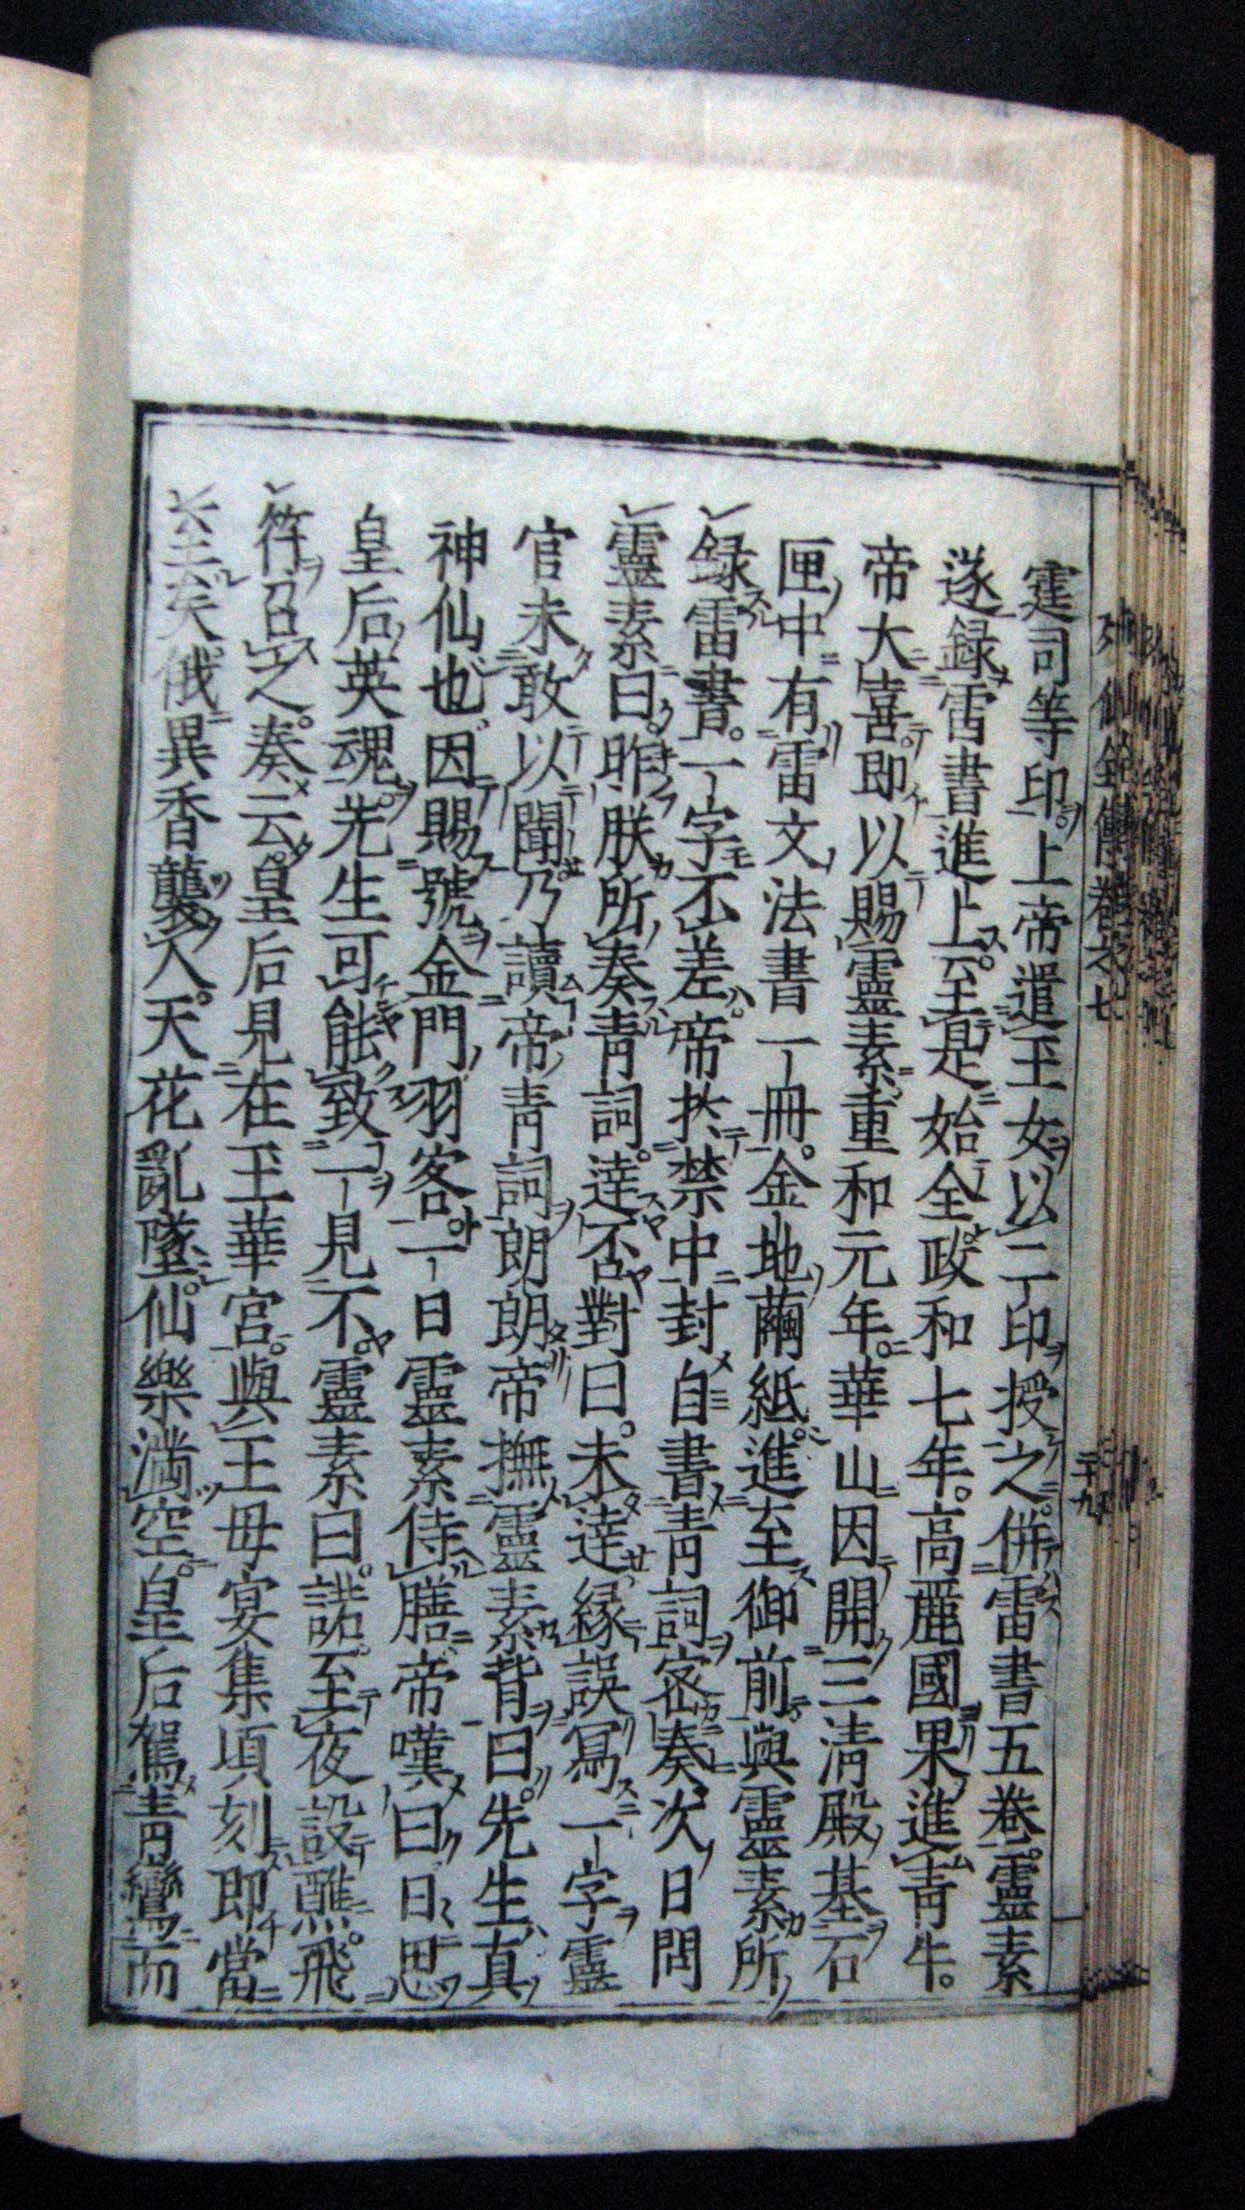 霆司等印上帝遣玉女以二印授之併雷書五卷靈素
遂録雷書進上至是始全政和七年高麗國果進青牛
帝大喜即以賜靈素重和元年華山因開三清殿基石
匣中有雷文法書一冊金地繭紙進至御前與靈素所
録雷書一字不差帝於禁中封自書青詞密奏次日問
靈素曰昨朕所奏青詞達否對曰未達緣誤寫一字靈
官未敢以聞乃讀帝青詞朗朗帝撫靈素背曰先生真
神仙也因賜號金門羽客一日靈素侍膳帝嘆曰日思
皇后英魂先生可能致一見不靈素曰諾至夜設醮飛
符召之奏云皇后見在玉華宮與王母宴集頃刻即當
至矣俄異香襲人天花亂墜仙樂滿空皇后駕青鸞而
列仙全傳卷之七
二十九